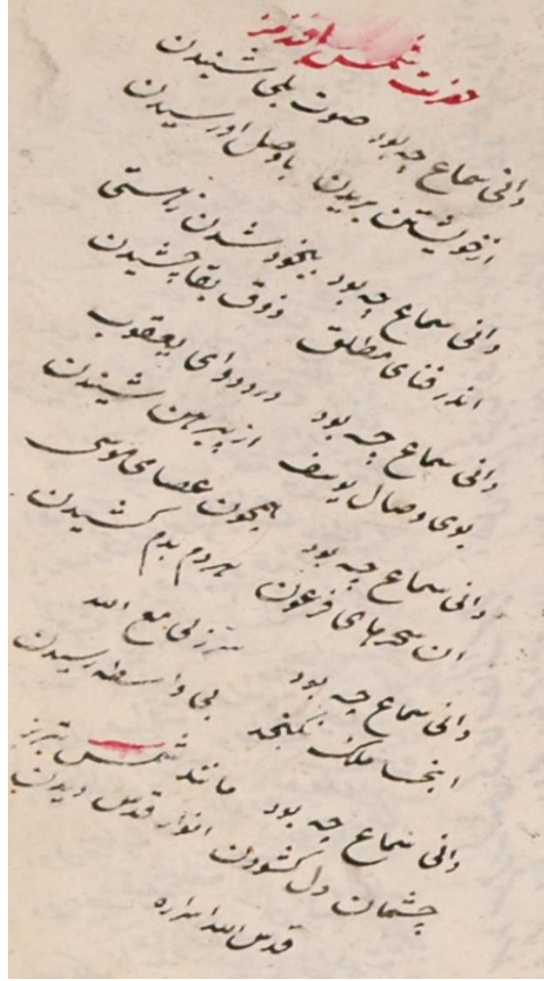 حضرت شمس
دانی سماع چه بود صوت بلی شنیدن
از خویشتن بریدن با وصل او رسیدن
دانی سماع چه بود بیخود شدن ز هستی
اندر فنای مطلق ذوق بقا چشیدن
دانی سماع چه بود درد و دوای یعقوب
بوی وصال یوسف از پیرهن شنیدن
دانی سماع چه بود همچون عصای موسی
ان سحرهای فرعون هر دم بدم کشیدن
دانی سماع چه بود سر لی مع الله
انجا ملک نکنجد بی واسطه رسیدن
دانی سماع چه بود مانند شمس تبریز
چشمان دل کشودن انوار قدس دیدن
قدس الله اسراره